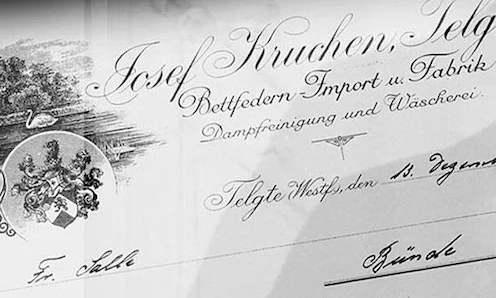 Josef Kruchen, Telg
Bettfedern-Import u. Fabrik
Dampfreinigung und Wäscherei.
Telgte Westfs, den 13. Dezem
Fr. Salle
Bünde